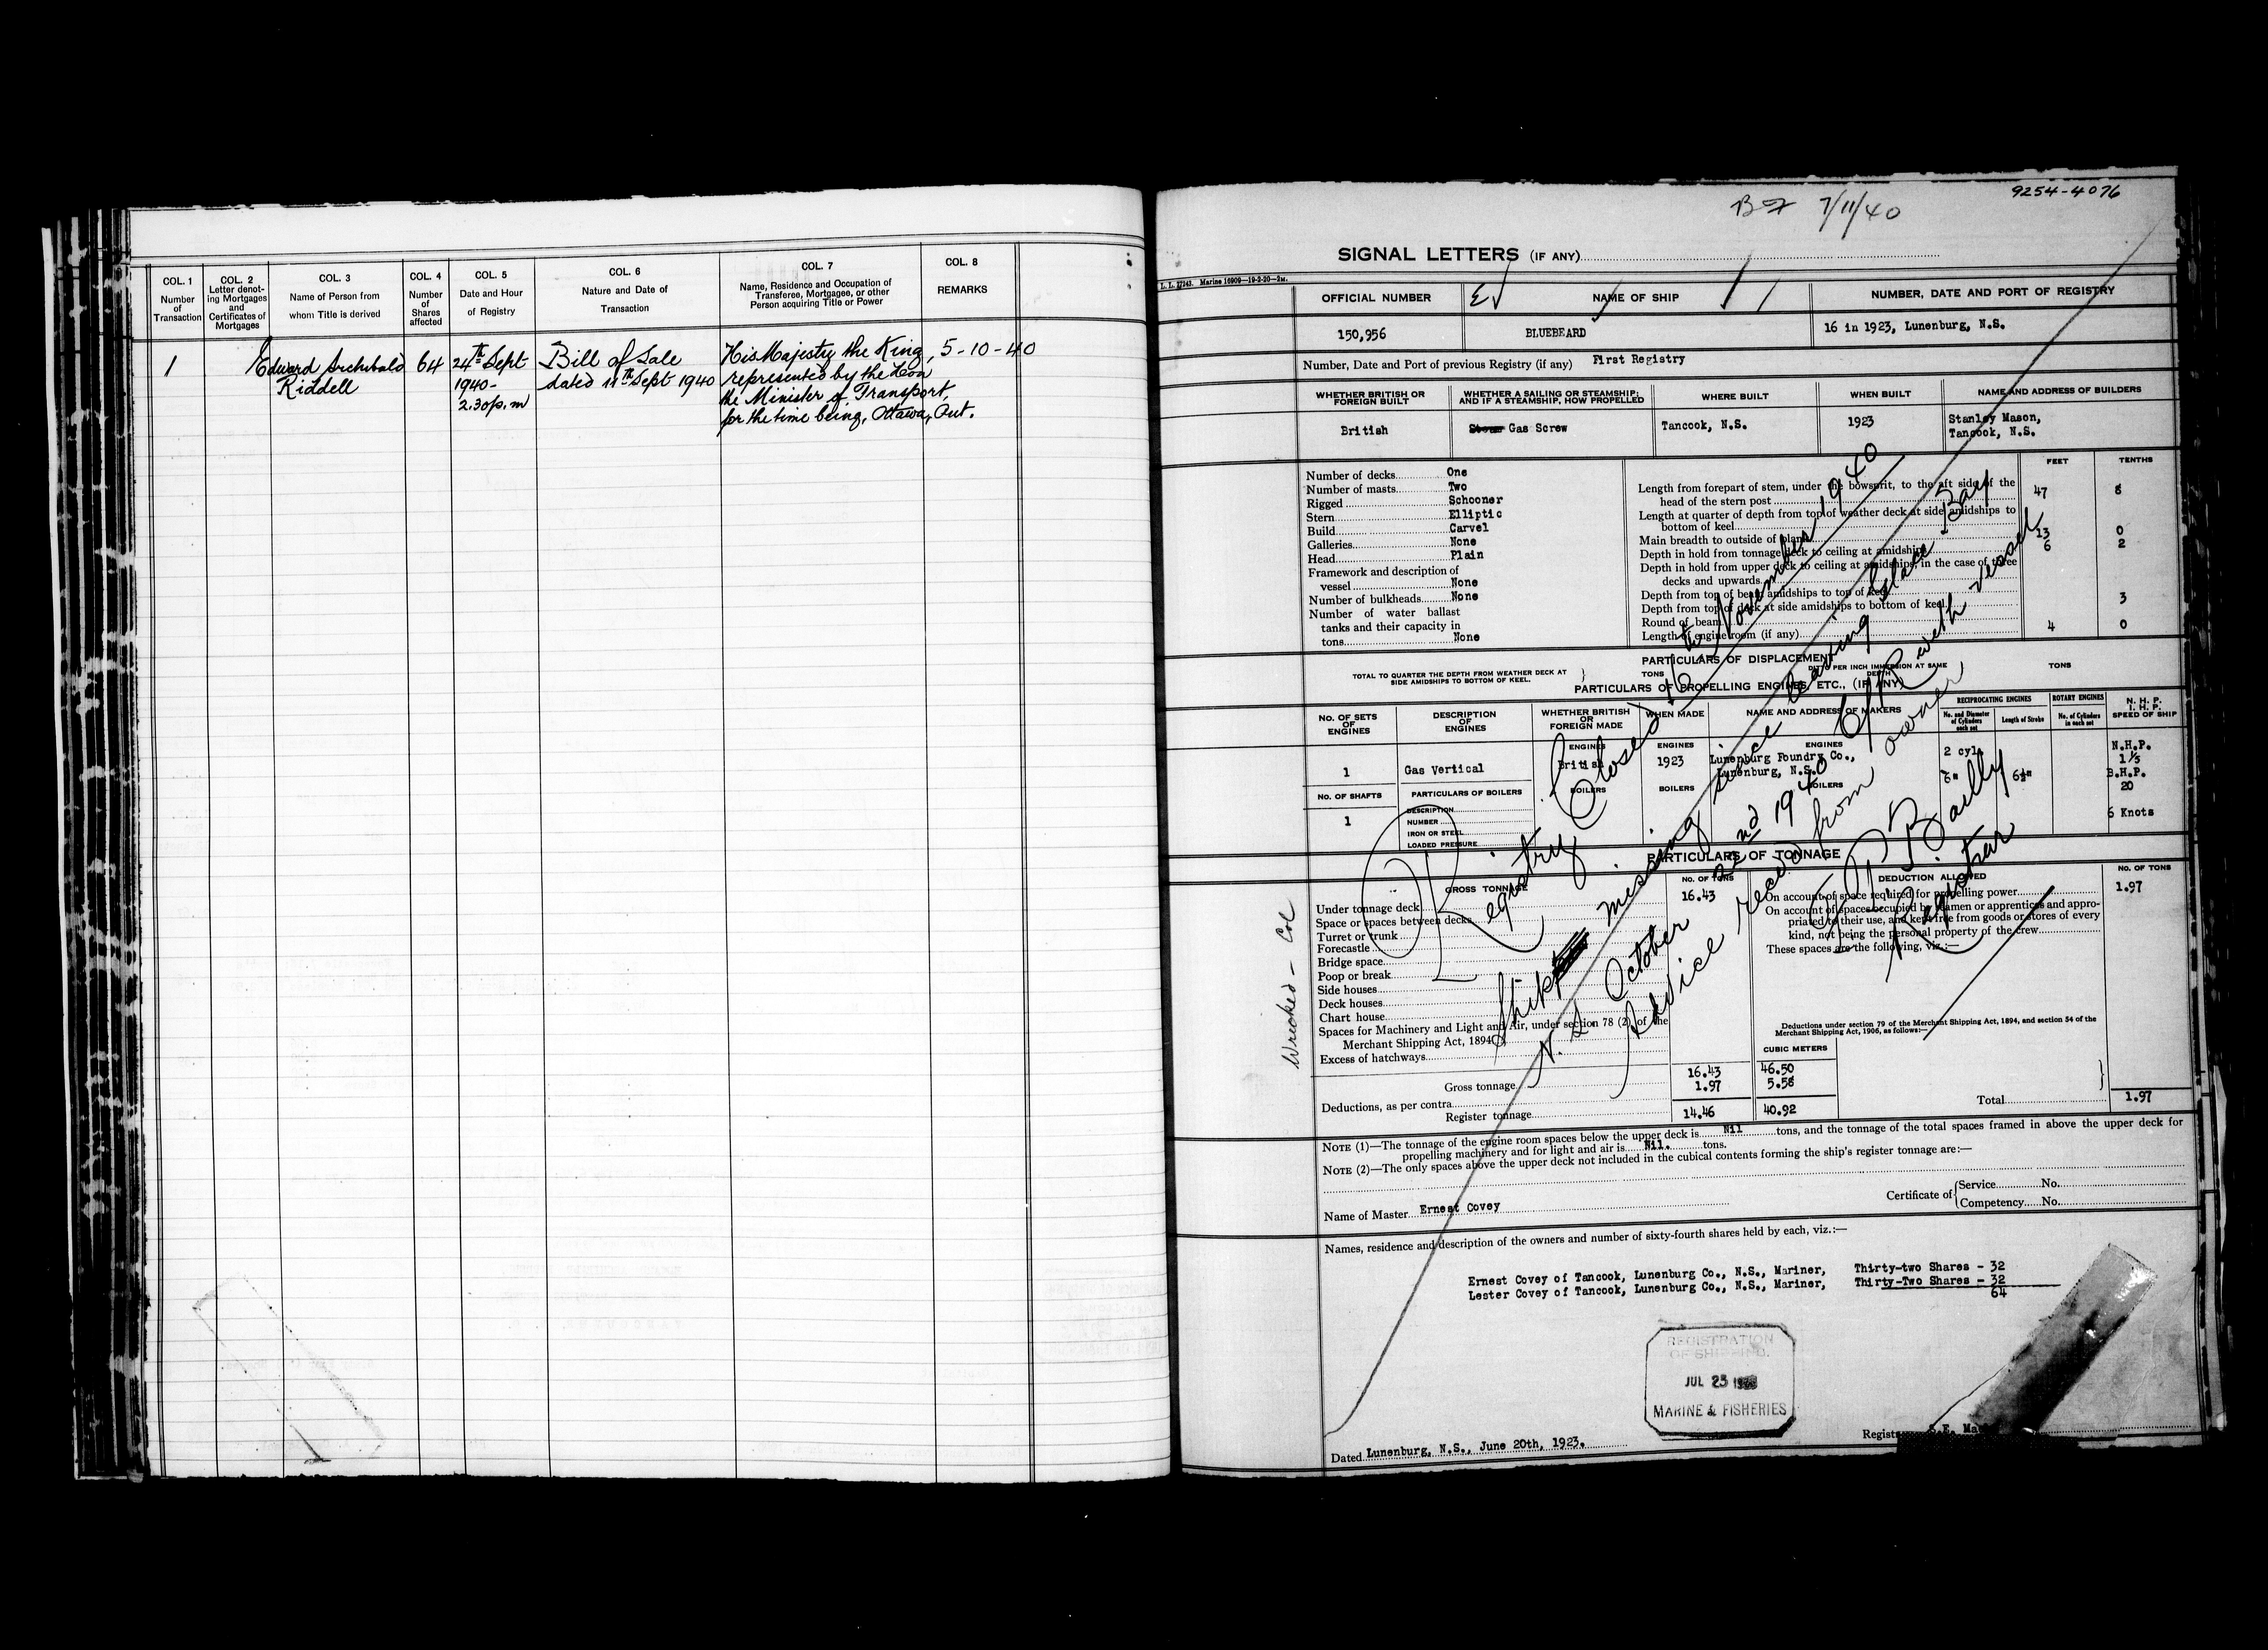 COL. 1
Number
of
Transaction
COL. 2
Letter denot-
ing Mortgages
and
Certificates of
Mortgages
COL. 3
Name of Person from
whom Title is derived
COL. 4
Number
of
Shares
affected
COL. 5
Date and Hour
of Registry
COL. 6
Nature and Date of
Transaction
COL. 7
Name, Residence and Occupation of
Transferee, Mortgagee, or other
Person acquiring Title or Power
COL. 8
REMARKS
1
Edward Archibald
Riddell
64
24th Sept
1940-
2.30 p.m
Bill of Sale
dated 11th Sept 1940
His Majesty the King,
represented by the Hon
the Minister of Transport,
for the time being, Ottawa, Ont.
5-10-40
9254-4076
7/11/40
SIGNAL LETTERS (IF ANY)
L. L. 27243. Marine 16909—19-2-20—2M.
OFFICIAL NUMBER
NAME OF SHIP
NUMBER, DATE AND PORT OF REGISTRY
150,956
BLUEBEARD
16 in 1923, Lunenburg, N.S.
Number, Date and Port of previous Registry (if any) First Registry
WHETHER BRITISH OR
FOREIGN BUILT
WHETHER A SAILING OR STEAMSHIP;
AND IF A STEAMSHIP, HOW PROPELLED
WHERE BUILT
WHEN BUILT
NAME AND ADDRESS OF BUILDERS
British
Gas Screw
Tancook, N.S.
1923
Stanley Mason,
Tancook, N.S.
Number of decks One
Number of masts Two
Rigged Schooner
Stern Elliptic
Build Carvel
Galleries None
Head Plain
Framework and description of
vessel None
Number of bulkheads None
Number of water ballast
tanks and their capacity in
tons None
FEET TENTHS
Length from forepart of stem, under the bowsprit, to the aft side of the
head of the stern post 47 8
Length at quarter of depth from top of weather deck at side amidships to
bottom of keel
Main breadth to outside of plank 13 0
Depth in hold from tonnage deck to ceiling at amidships 6 2
Depth in hold from upper deck to ceiling at amidships, in the case of three
decks and upwards
Depth from top of beam amidships to top of keel
Depth from top of deck at side amidships to bottom of keel
Round of beam 3
Length of engine room (if any) 4 0
PARTICULARS OF DISPLACEMENT
TOTAL TO QUARTER THE DEPTH FROM WEATHER DECK AT
SIDE AMIDSHIPS TO BOTTOM OF KEEL.
TONS
DITTO PER INCH IMMERSION AT SAME
DEPTH
TONS
PARTICULARS OF PROPELLING ENGINES, ETC., (IF ANY)
NO. OF SETS
OF
ENGINES
DESCRIPTION
OF
ENGINES
WHETHER BRITISH
OR
FOREIGN MADE
WHEN MADE
NAME AND ADDRESS OF MAKERS
RECIPROCATING ENGINES
No. and Diameter
of Cylinders
each set
Length of Stroke
ROTARY ENGINES
No. of Cylinders
in each set
N. H. P.
I. H. P.
SPEED OF SHIP
ENGINES
ENGINES
ENGINES
1
Gas Vertical
British
1923
Lunenburg Foundry Co.,
Lunenburg, N.S.
2 cyl.
6"
6½"
N.H.P.
B.H.P.
20
6 Knots
NO. OF SHAFTS
PARTICULARS OF BOILERS
BOILERS
BOILERS
BOILERS
1
DESCRIPTION
NUMBER
IRON OR STEEL
LOADED PRESSURE
PARTICULARS OF TONNAGE
GROSS TONNAGE
NO. OF TONS
DEDUCTION ALLOWED
NO. OF TONS
Under tonnage deck 16.43
Space or spaces between decks
Turret or trunk
Forecastle
Bridge space
Poop or break
Side houses
Deck houses
Chart house
Spaces for Machinery and Light and Air, under section 78 (2) of the
Merchant Shipping Act, 1894
Excess of hatchways
On account of space required for propelling power 1.97
On account of spaces occupied by seamen or apprentices and appro-
priated to their use, and kept free from goods or stores of every
kind, not being the personal property of the crew
These spaces are the following, viz.:—
Deductions under section 79 of the Merchant Shipping Act, 1894, and section 54 of the
Merchant Shipping Act, 1906, as follows:—
CUBIC METERS
Gross tonnage 16.43 46.50
Deductions, as per contra 1.97 5.58
Register tonnage 14.46 40.92
Total 1.97
NOTE (1)—The tonnage of the engine room spaces below the upper deck is Nil tons, and the tonnage of the total spaces framed in above the upper deck for
propelling machinery and for light and air is Nil. tons.
NOTE (2)—The only spaces above the upper deck not included in the cubical contents forming the ship's register tonnage are:—
Name of Master Ernest Covey
Certificate of
Service No.
Competency No.
Names, residence and description of the owners and number of sixty-fourth shares held by each, viz.:—
Ernest Covey of Tancook, Lunenburg Co., N.S., Mariner, Thirty-two Shares - 32
Lester Covey of Tancook, Lunenburg Co., N.S., Mariner, Thirty-Two Shares - 32
64
REGISTRATION
OF SHIPPING.
JUL 23
MARINE & FISHERIES
Dated Lunenburg, N.S., June 20th, 1923.
Wrecked - Col
Registry Closed 16th November 1940
Ship missing since leaving Glace Bay
N.S. October 2nd 1940 C/R with vessel
Advice rec'd from owner
Bailly
Registrar